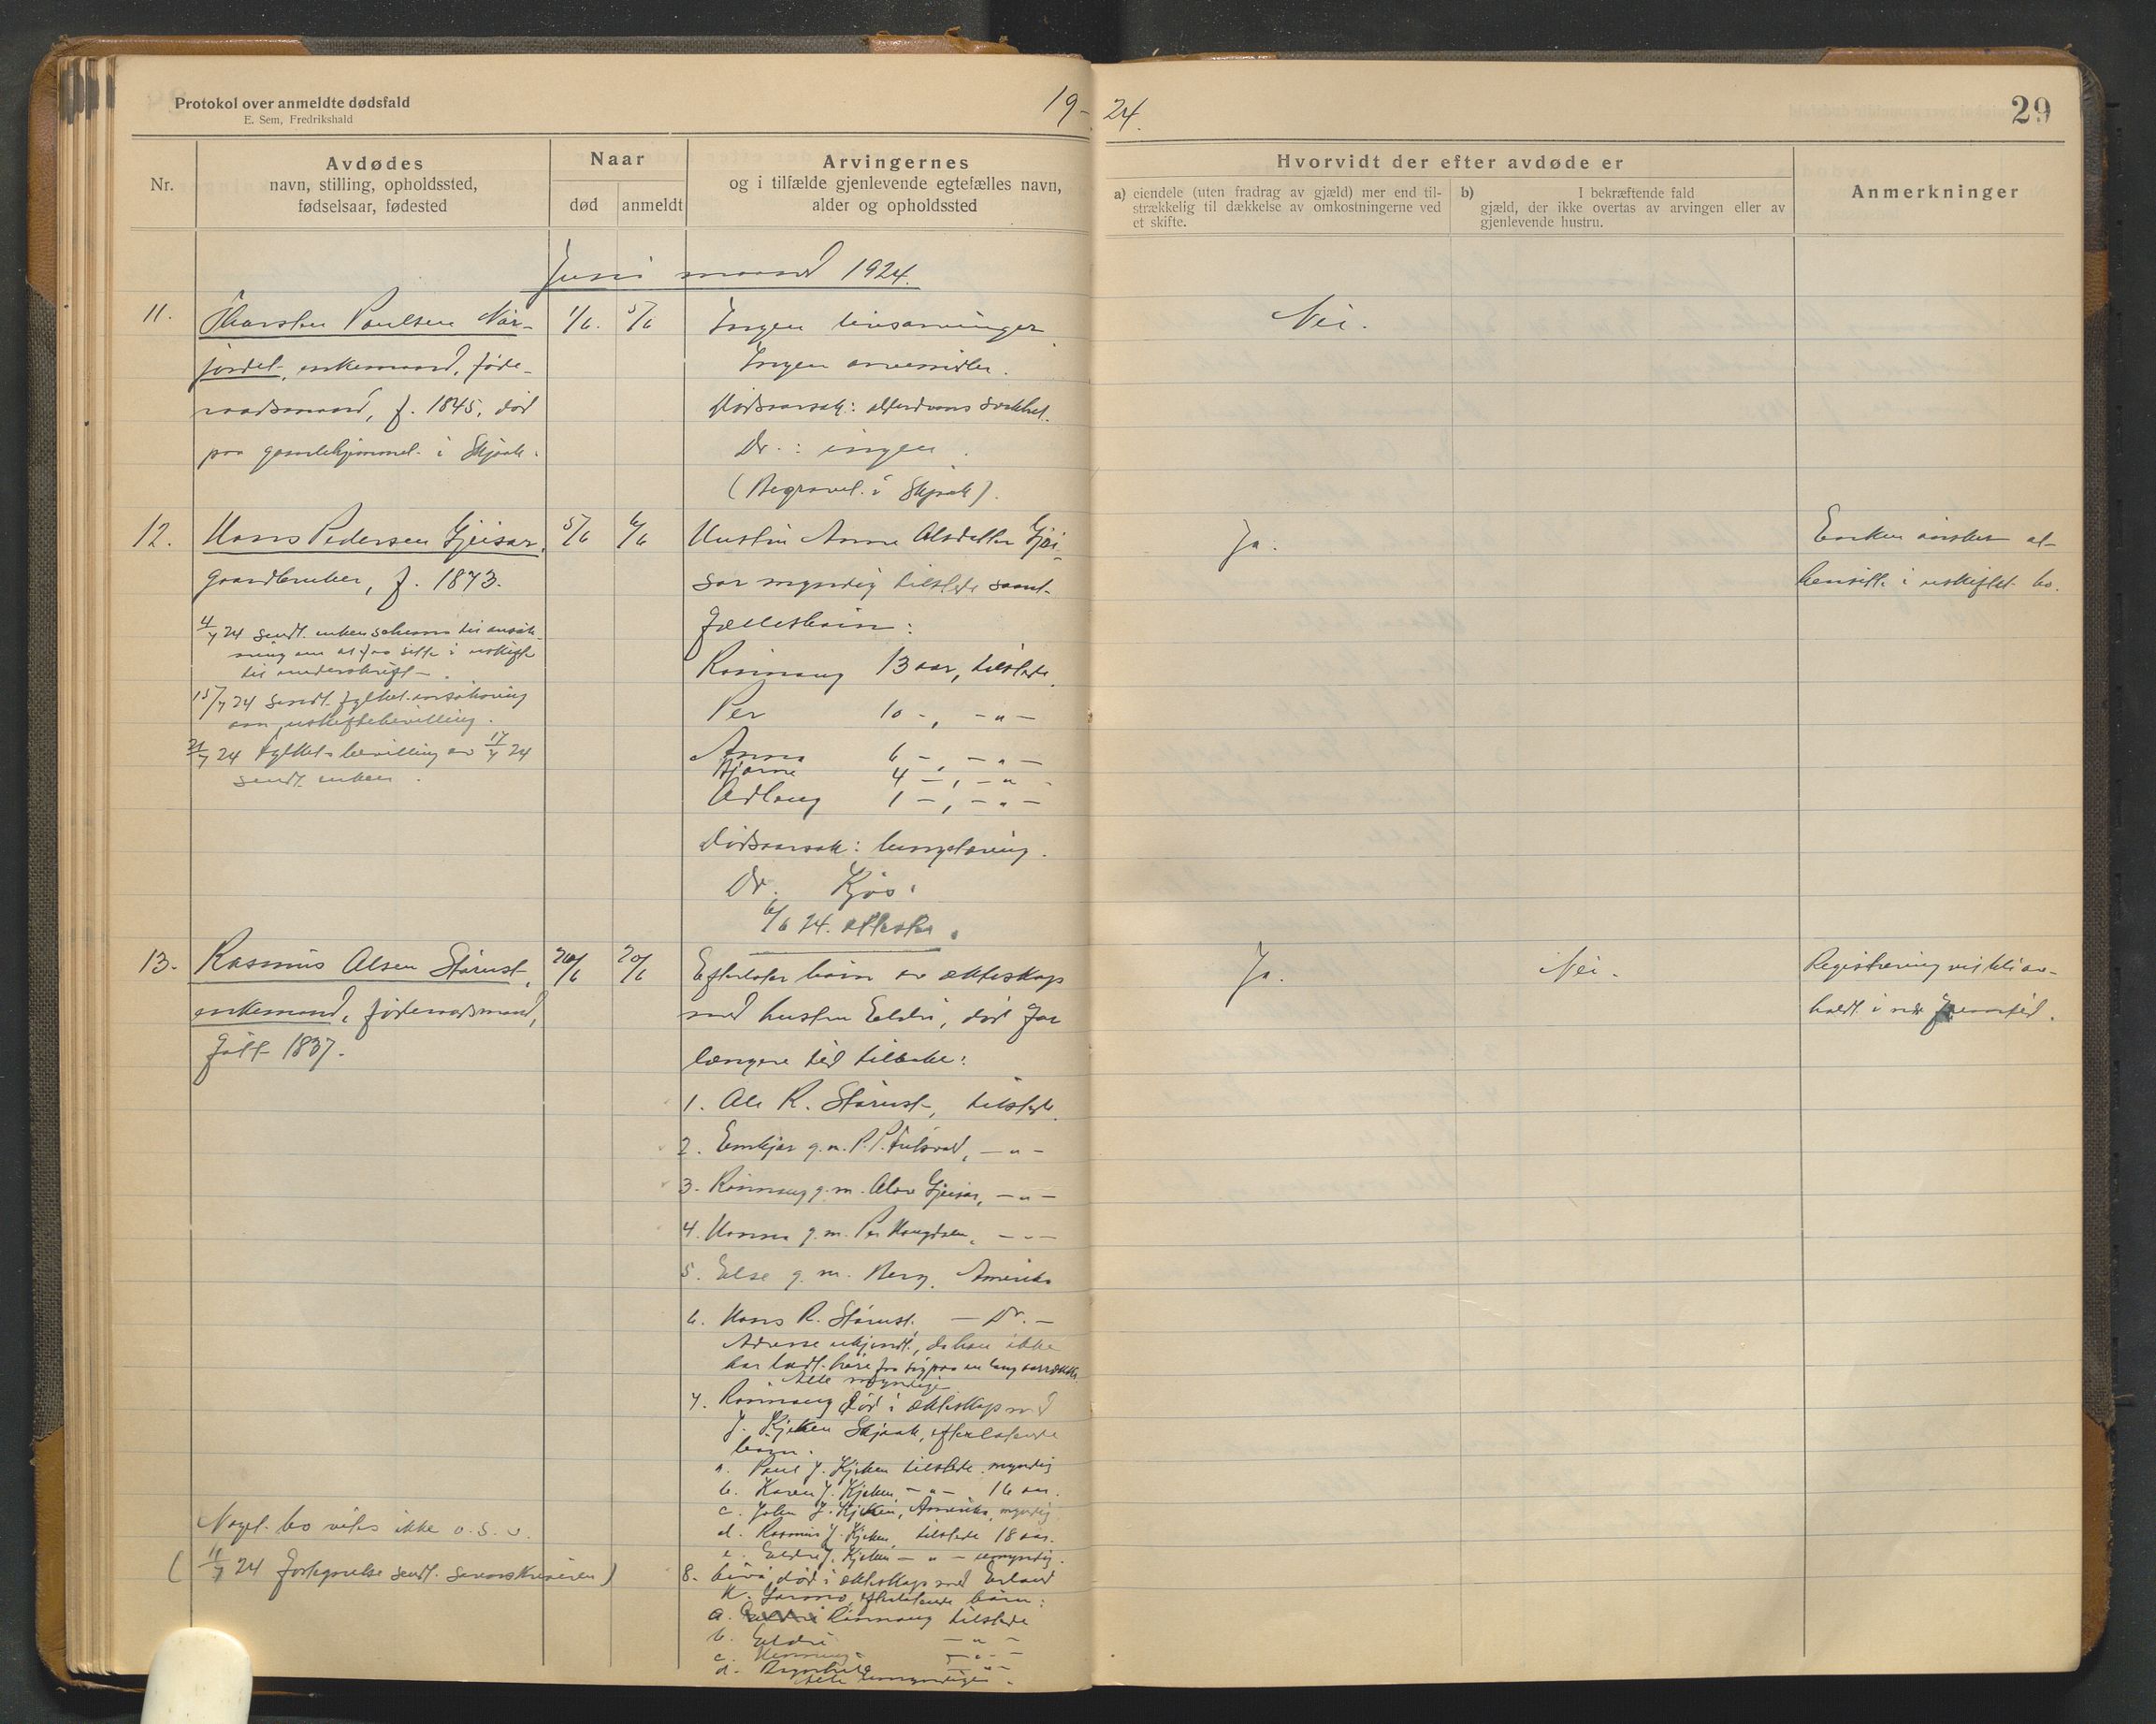 Protokol over anmeldte dødsfald
E. Sem, Fredrikshald
19-24.
29
Nr.
Avdødes
navn, stilling, opholdssted,
fødselsaar, fødested
Naar
død
anmeldt
Arvingernes
og i tilfælde gjenlevende egtefælles navn,
alder og opholdssted
Hvorvidt der efter avdøde er
a) eiendele (uten fradrag av gjæld) mer end til-
strækkelig til dækkelse av omkostningerne ved
et skifte.
b) I bekræftende fald
gjæld, der ikke overtas av arvingen eller av
gjenlevende hustru.
Anmerkninger
Juni maaned 1924.
11.
Tharsten Paulsen Nör-
jordet, enkemand, føde-
raadsmand, f. 1845, död
paa gamlehjemmet i Skjaak.
1/6.
5/6
Ingen livsarvinger
Ingen arvemidler.
Dödsaarsak: alderdoms svakhet.
Dr.: ingen.
(Begravet i Skjaak).
Nei.
12.
Hans Pedersen Gjeisar,
gaardbruker, f. 1873.
4/7 24 sendt enken schema til ansök-
ning om at faa sitte i uskifte
til underskrift.
15/7 24 sendt fylket ansökning
om uskiftebevilling.
21/7 24 fylkets bevilling av 17/7 24
sendt enken.
5/6
6/6
Hustru Anne Olsdatter Gjei-
sar myndig tilstede samt
fællesbarn:
Rönnaug 13 aar, tilstede.
Per 10 -, -"-
Anna 6 -, -"-
Bjarne 4 -, -"-
Odlaug 1 -, -"-
Dödsaarsak: lungetæring.
Dr. Kjös.
6/6 24. attester.
Ja.
Enken önsker at
hensitte i uskiftet bo.
13.
Rasmus Olsen Störust,
enkemand, föderaadsmand,
födt 1837.
20/6
20/6
Efterlater barn av ekteskap
med hustru Eldri, död for
længere tid tilbake:
1. Ole R. Störust, tilstede.
2. Embjør g. m. P. P. -"-
3. Rönnaug g. m. Olav Gjeisar, -"-
4. Hanna g. m. Per Haugsøen, -"-
5. Else g. m. Berg, Amerika
6. Hans R. Störust. - Do. -
Adresse ukjendt, da han ikke
har latt höre fra sig paa en lang aarrække.
Alle myndige
7. Rönnaug död i ekteskap med
J. Kjeken Skjaak, efterlatende
barn:
a. Paul J. Kjeken tilstede myndig
b. Karen J. Kjeken -"- 16 aar.
c. John J. Kjeken, Amerika, myndig
d. Rasmus J. Kjeken, tilstede 18 aar.
e. Eldri J. Kjeken -"- umyndig.
8. död i ekteskap med Erland
K. Garmo, efterlatende barn:
a. Rönnaug tilstede
b. Eldri -"-
c. -"-
d. Ragnhild -"-
Alle umyndige.
Ja.
Nei.
Registrering vil bli av-
holdt i nær fremtid.
Noget bo vites ikke o. s. v.
(11/7 24 fortegnelse sendt sorenskriveren)